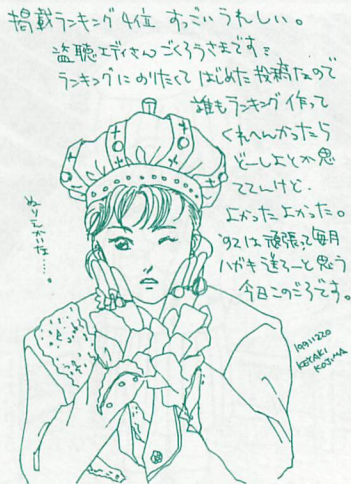 掲載ランキング4位 すっごいうれしい。
盗聴エディさんごくろうさまです
ランキングにのりたくて はじめた投稿なので
誰もランキング作って
くれへんかったら
どーしよとか思
ててんけど.
よかったよかった。
'92は頑張って毎月
ハガキ送ろーと思う
今日このごろです。
ぬりえみたいだな……。
19911220
KEYAKI
KOJIMA